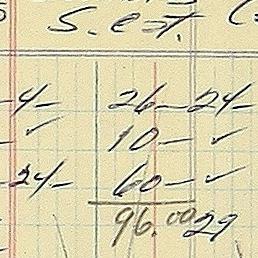 S. est.
-4- 26-24-
- ✓ 10- ✓
24- 60- ✓
96.00 29